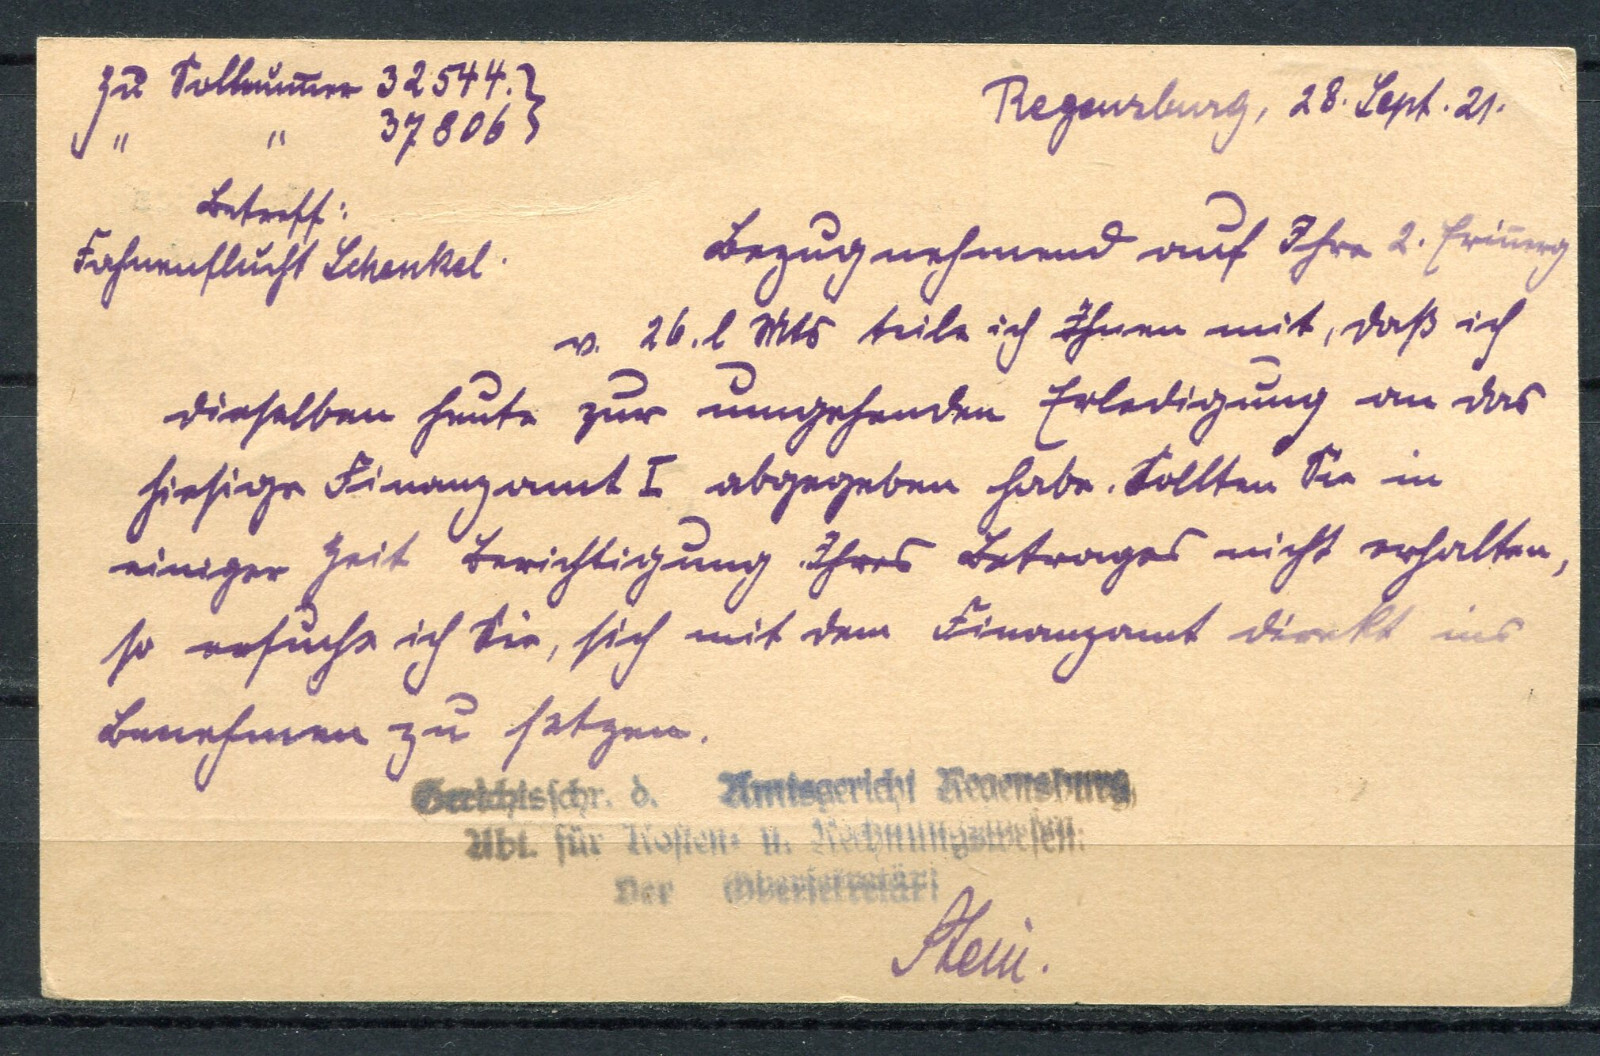 Zu Sollnum̅er 32544.}
" " 37806}
Regensburg, 28. Sept. 21.
Betreff:
Fahnenflucht Schenkel.
Bezugnehmend auf Ihre 2. Erin̅erg
v. 26. l Mts teile ich Ihnen mit, daß ich
dieselben heute zur umgehenden Erledigung an das
hiesige Finanzamt I abgegeben habe. Sollten Sie in
einiger Zeit Berichtigung Ihres Betrages nicht erhalten,
so ersuche ich Sie, sich mit dem Finanzamt direkt ins
Benehmen zu setzen.
Gerichtsschr. d. Amtsgericht Regensburg,
Abt. für Kosten- u. Rechnungswesen.
Der Obersekretär:
Stein.